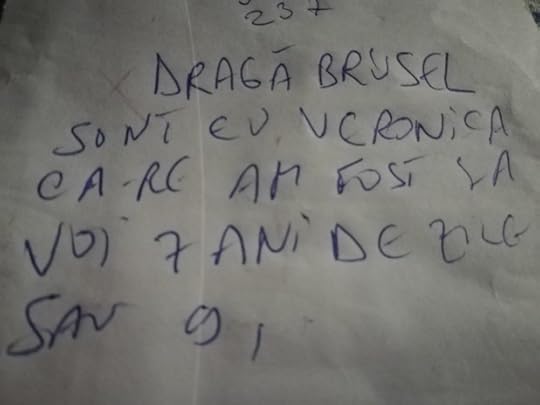 237
DRAGĂ BRUSEL
SONT EU VERONICA
CA-RE AM FOST LA
VOI 7 ANI DE ZILE
SAU 9,